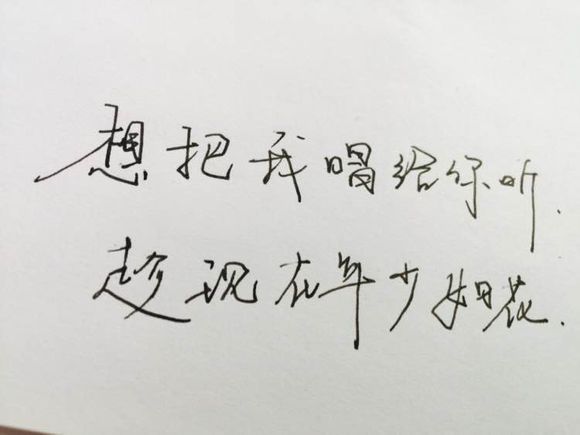 想把我唱给你听.
趁现在年少如花.